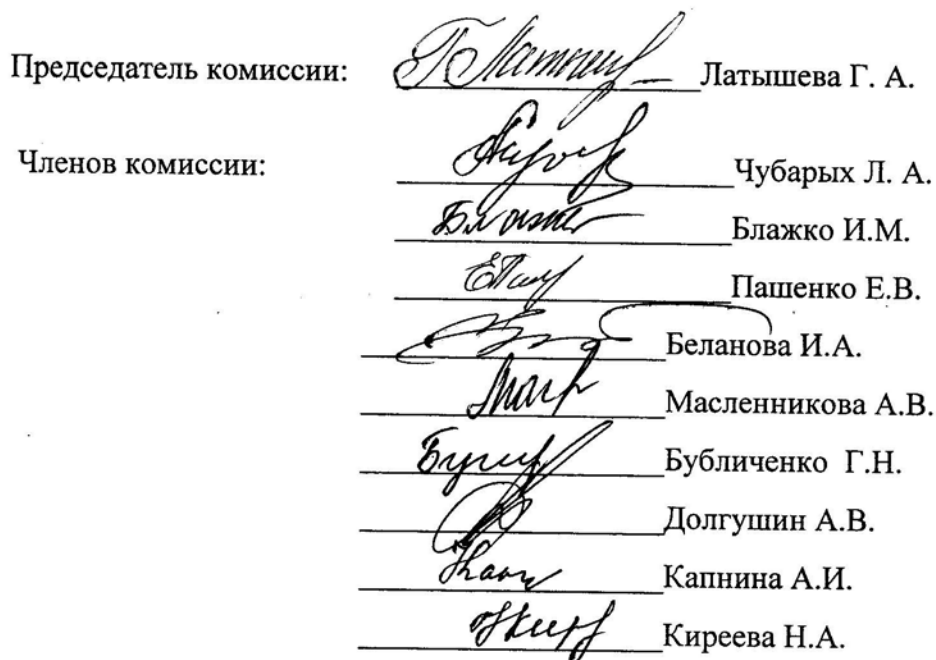 Председатель комиссии: Латышева Г. А.
Членов комиссии: Чубарых Л. А.
Блажко И.М.
Пашенко Е.В.
Беланова И.А.
Масленникова А.В.
Бубличенко Г.Н.
Долгушин А.В.
Капнина А.И.
Киреева Н.А.